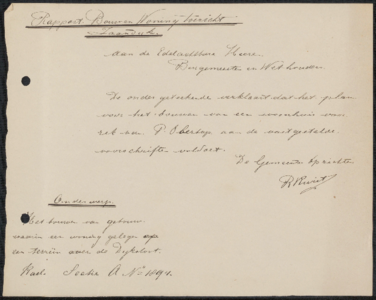 Rapport Bouw en Woning Toezicht
Zaandijk
Aan de Edelachtbare Heeren
Burgemeester en Wethouders
De ondergeteekende verklaart dat het plan
voor het bouwen van een woonhuis van
rek. van P. Oberteg aan de vastgestelde
voorschriften voldoet.
De Gemeente opzichter
Onderwerp
Het bouwen van gebouw
waarin een woning gelegen op
een terrein aan de Dijksloot.
Kad. Sectie A No 1494.